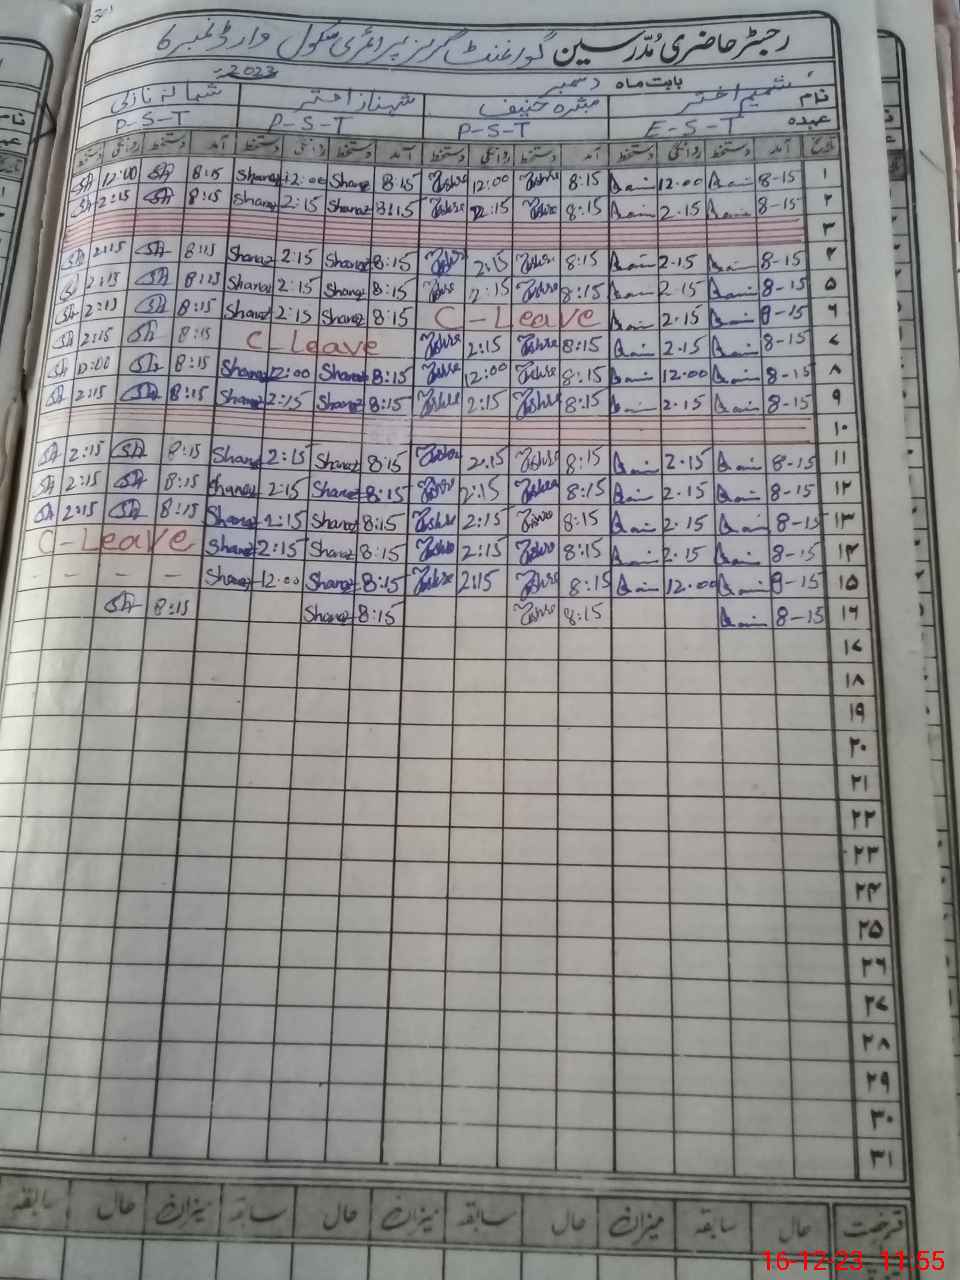 رجسٹر حاضری مدرسین گورنمنٹ گرلز پرائمری سکول وارڈ نمبر 6
بابت ماہ دسمبر 2023
نام شمیم اختر مبشرہ حنیف شہناز اختر شمائلہ نازلی
عہدہ E-S-T P-S-T P-S-T P-S-T
تاریخ آمد دستخط روانگی دستخط آمد دستخط روانگی دستخط آمد دستخط روانگی دستخط آمد دستخط روانگی دستخط
۱ 8-15 12.00 8:15 12:00 8:15 Shanaz 12:00 Shanaz 8:15 SA 12:00 SA
۲ 8-15 2.15 8:15 2:15 8:15 Shanaz 2:15 Shanaz 8:15 SA 2:15 SA
۳
۴ 8-15 2.15 8:15 2:15 8:15 Shanaz 2:15 Shanaz 8:15 SA 2:15 SA
۵ 8-15 2.15 8:15 2:15 8:15 Shanaz 2:15 Shanaz 8:15 SA 2:15
۶ 8-15 2.15 C-Leave 8:15 Shanaz 2:15 Shanaz 8:15 SA 2:15 SA
۷ 8-15 2.15 8:15 2:15 C-Leave 8:15 SA 2:15 SA
۸ 8-15 12.00 8:15 12:00 8:15 Shanaz 12:00 Shanaz 8:15 SA SA
۹ 8-15 2.15 8:15 2:15 8:15 Shanaz 2:15 Shanaz 8:15 SA 2:15 SA
۱۰
۱۱ 8-15 2.15 8:15 2:15 8:15 Shanaz 2:15 Shanaz 8:15 SA 2:15 SA
۱۲ 8-15 2.15 8:15 2:15 8:15 Shanaz 2:15 Shanaz 8:15 SA 2:15 SA
۱۳ 8-15 2.15 8:15 2:15 8:15 Shanaz 2:15 Shanaz 8:15 SA 2:15 SA
۱۴ 8-15 2.15 8:15 2:15 8:15 Shanaz 2:15 Shanaz C-Leave
۱۵ 8-15 12.00 8:15 2:15 8:15 Shanaz 12:00 Shanaz - - - -
۱۶ 8-15 8:15 8:15 Shanaz 8:15 SA
۱۷
۱۸
۱۹
۲۰
۲۱
۲۲
۲۳
۲۴
۲۵
۲۶
۲۷
۲۸
۲۹
۳۰
۳۱
قسم رخصت حال سابقہ میزان حال سابقہ میزان حال سابقہ میزان حال سابقہ
16-12-23 11:55